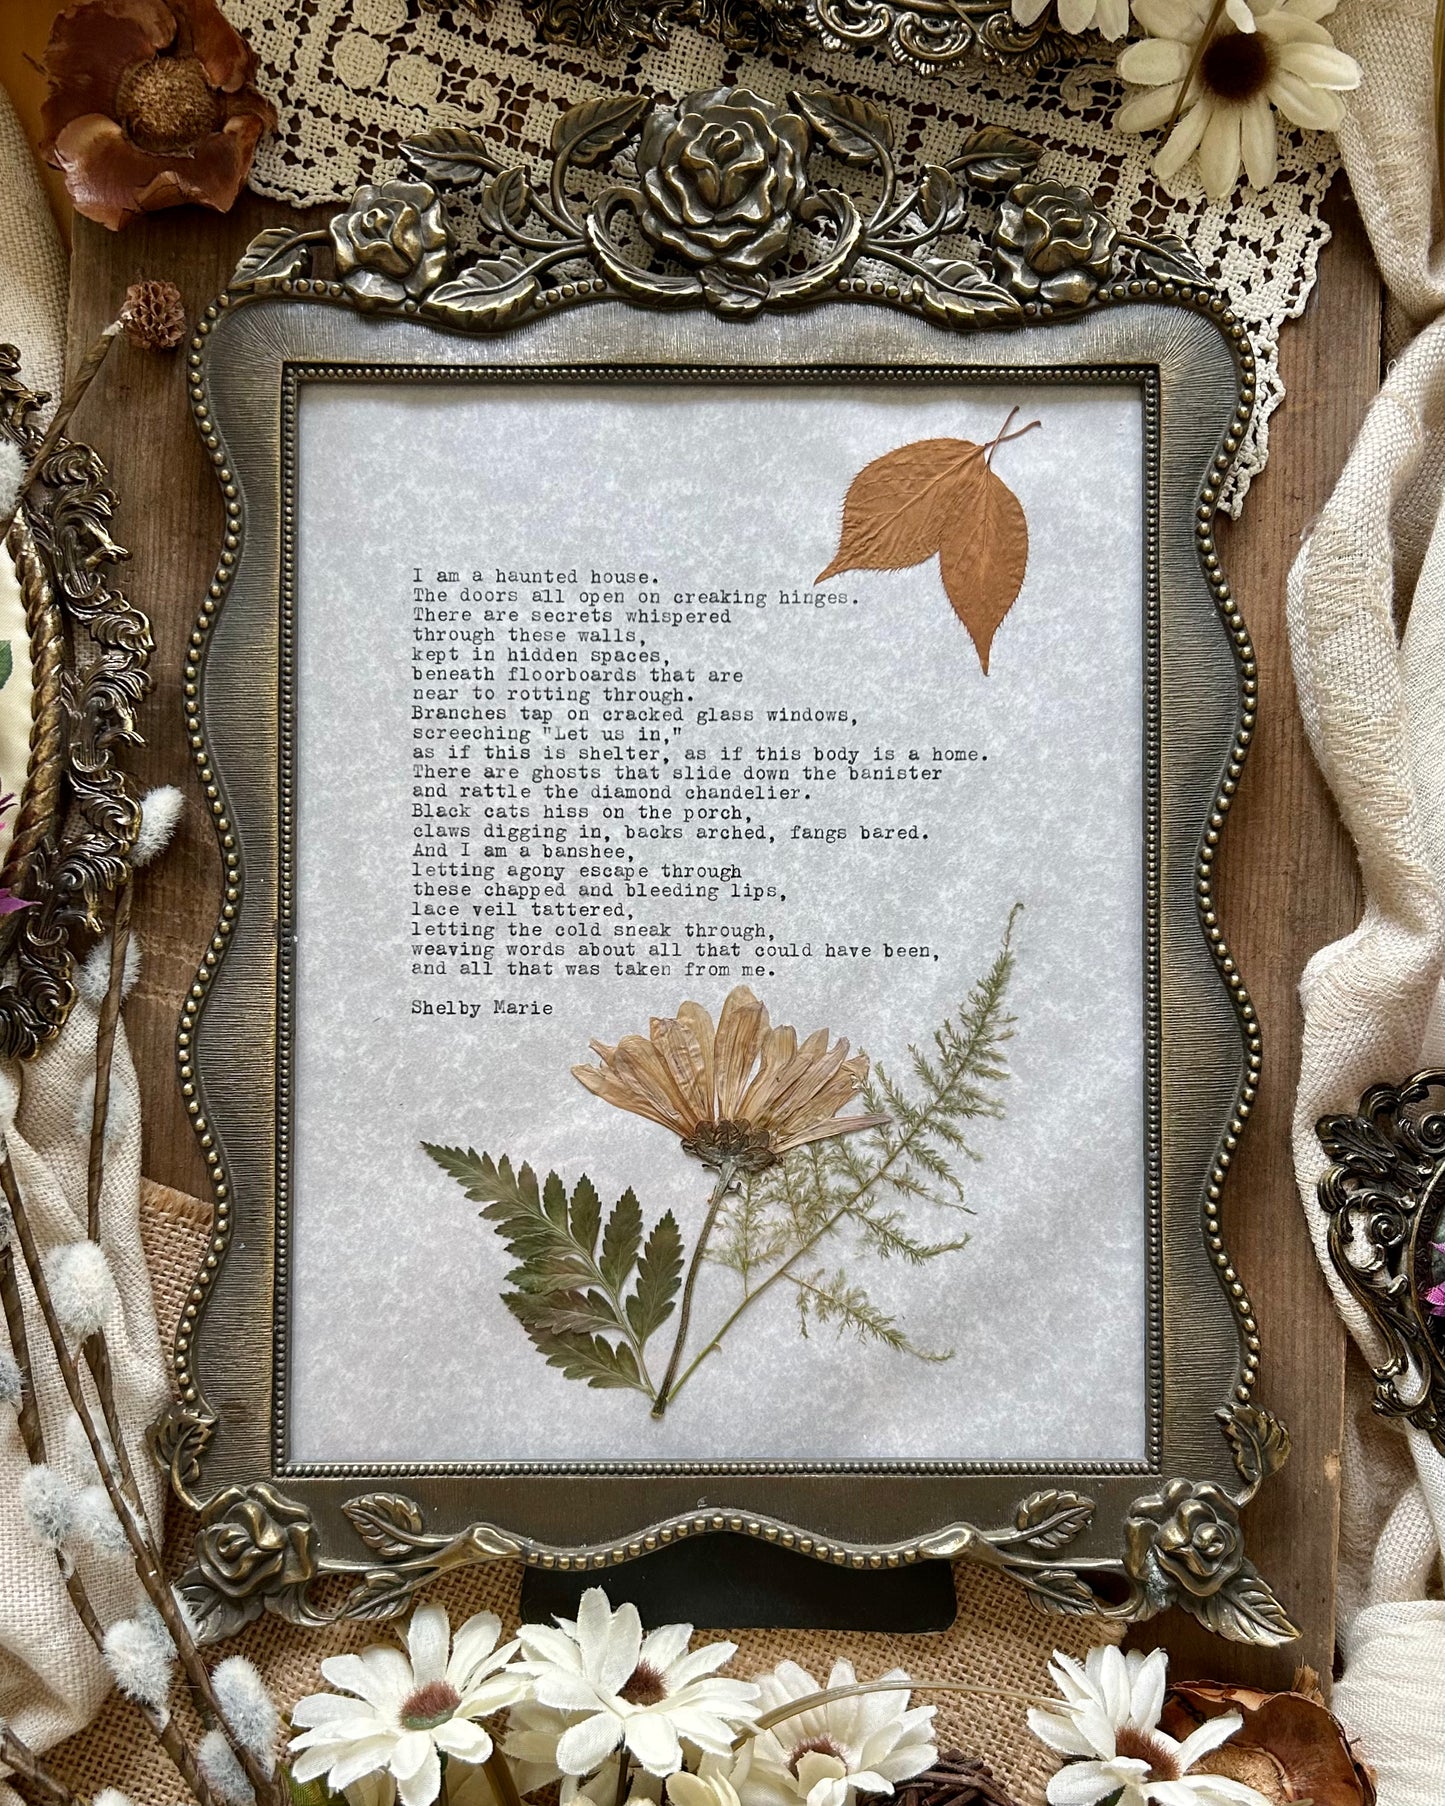 I am a haunted house.
The doors all open on creaking hinges.
There are secrets whispered
through these walls,
kept in hidden spaces,
beneath floorboards that are
near to rotting through.
Branches tap on cracked glass windows,
screeching "Let us in,"
as if this is shelter, as if this body is a home.
There are ghosts that slide down the banister
and rattle the diamond chandelier.
Black cats hiss on the porch,
claws digging in, backs arched, fangs bared.
And I am a banshee,
letting agony escape through
these chapped and bleeding lips,
lace veil tattered,
letting the cold sneak through,
weaving words about all that could have been,
and all that was taken from me.
Shelby Marie